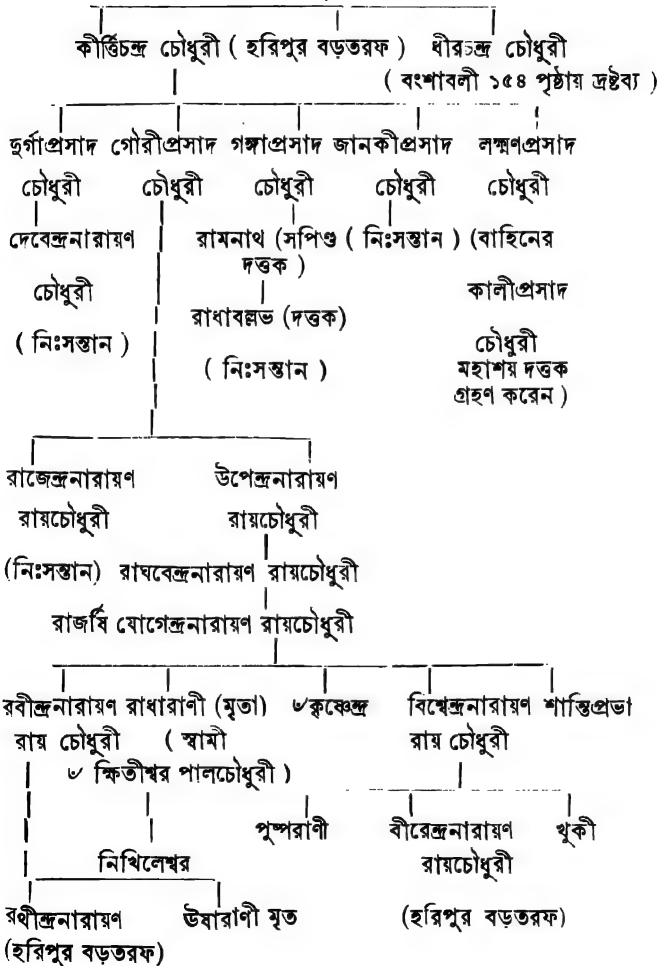 কীর্ত্তিচন্দ্র চৌধুরী ( হরিপুর বড়তরফ ) ধীরচন্দ্র চৌধুরী
( বংশাবলী ১৫৪ পৃষ্ঠায় দ্রষ্টব্য )
দুর্গাপ্রসাদ গৌরীপ্রসাদ গঙ্গাপ্রসাদ জানকীপ্রসাদ লক্ষ্মণপ্রসাদ
চৌধুরী চৌধুরী চৌধুরী চৌধুরী চৌধুরী
দেবেন্দ্রনারায়ণ রামনাথ (সপিণ্ড ( নিঃসন্তান ) (বাহিনের
দত্তক )
চৌধুরী কালীপ্রসাদ
রাধাবল্লভ (দত্তক)
( নিঃসন্তান ) চৌধুরী
( নিঃসন্তান ) মহাশয় দত্তক
গ্রহণ করেন )
রাজেন্দ্রনারায়ণ উপেন্দ্রনারায়ণ
রায়চৌধুরী রায়চৌধুরী
(নিঃসন্তান) রাঘবেন্দ্রনারায়ণ রায়চৌধুরী
রাজর্ষি যোগেন্দ্রনারায়ণ রায়চৌধুরী
রবীন্দ্রনারায়ণ রাধারাণী (মৃতা) ৺কৃষ্ণেন্দ্র বিশ্বেন্দ্রনারায়ণ শান্তিপ্রভা
রায় চৌধুরী ( স্বামী রায় চৌধুরী
৺ ক্ষিতীশ্বর পালচৌধুরী )
পুষ্পরাণী বীরেন্দ্রনারায়ণ খুকী
নিখিলেশ্বর রায়চৌধুরী
রথীন্দ্রনারায়ণ ঊষারাণী মৃত (হরিপুর বড়তরফ)
(হরিপুর বড়তরফ)